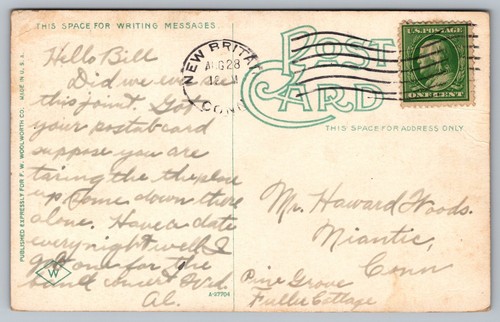 THIS SPACE FOR WRITING MESSAGES
Hello Bill
Did we ever see
this joint. Got
your postal card
suppose you are
taring the place
up. Come down there
alone. Have a date
every night well I
got one for the
band concert Wed
Al.
PUBLISHED EXPRESSLY FOR F. W. WOOLWORTH CO. MADE IN U.S.A.
W
A-57704
NEW BRITAIN
AUG 28
12 M
CONN
POST
CARD
U.S. POSTAGE
ONE CENT
THIS SPACE FOR ADDRESS ONLY.
Mr. Haward Woods.
Niantic,
Conn
Pine Grove
Fuller Cottage